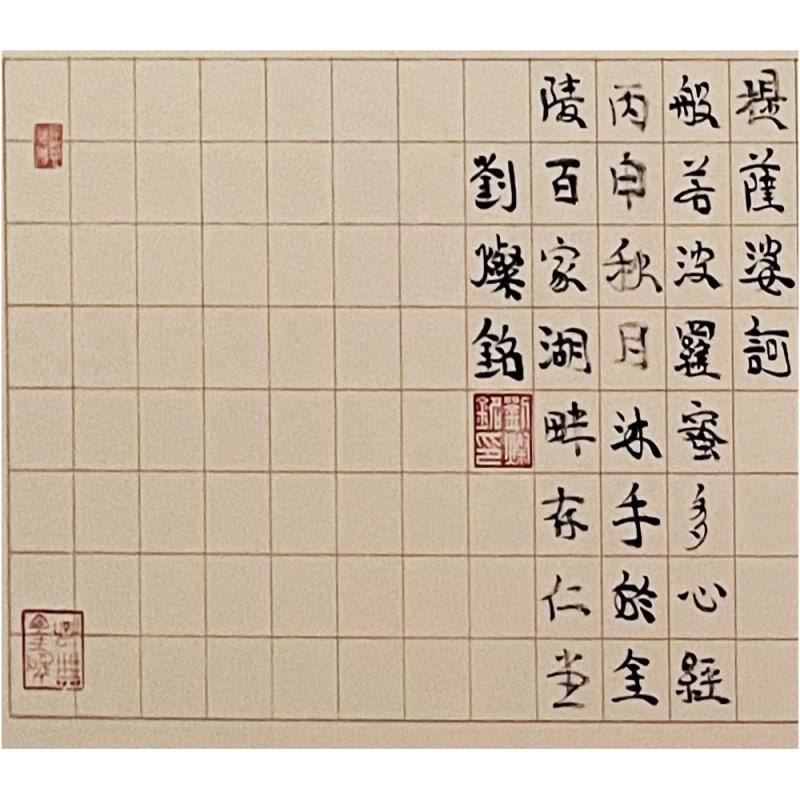 提薩婆訶
般若波羅蜜多心經
丙申秋月沐手於金
陵百家湖畔存仁堂
劉燦銘
劉燦銘印